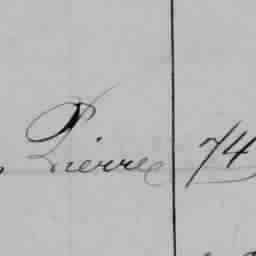 Pierre 74